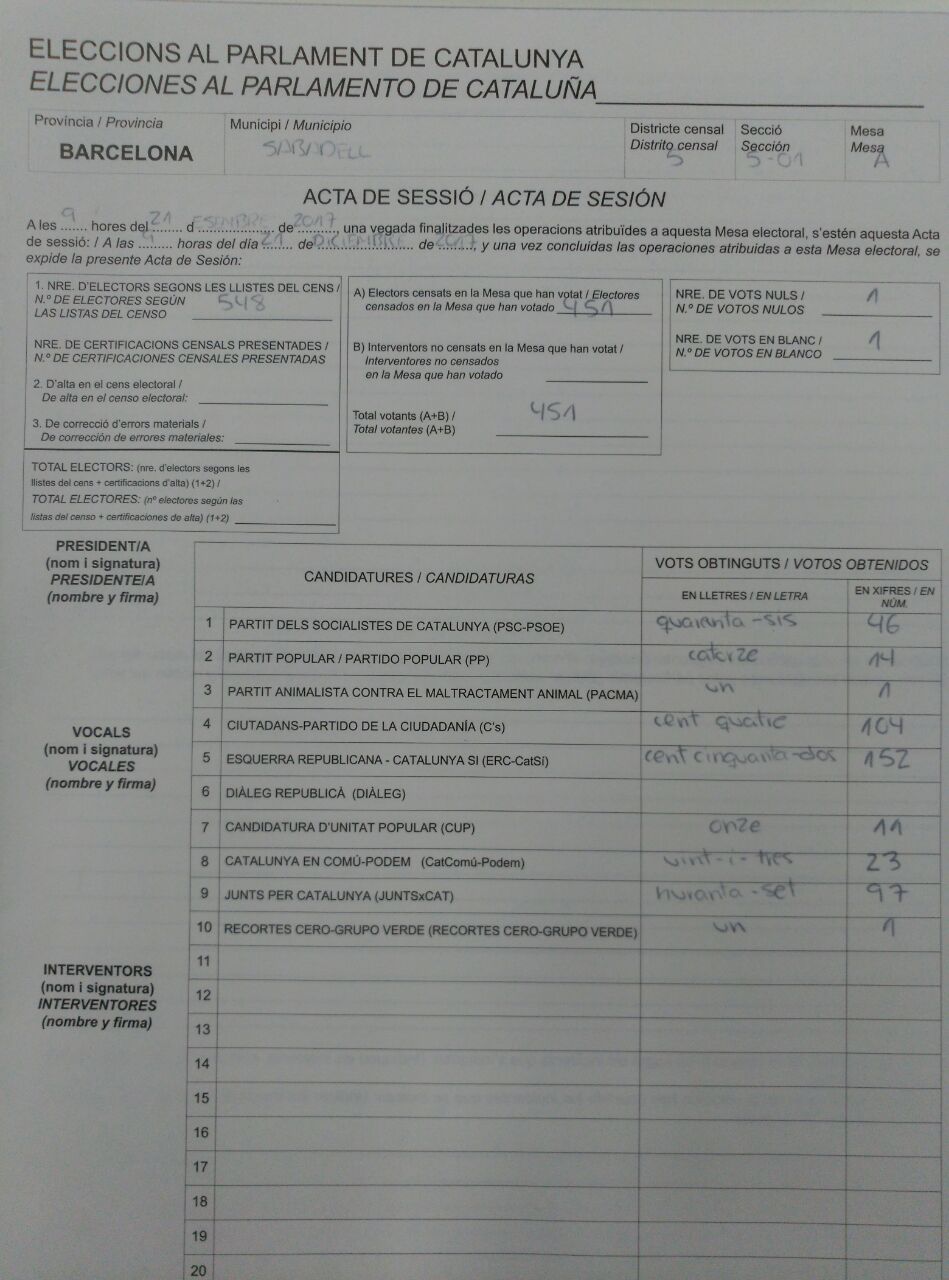 ELECCIONS AL PARLAMENT DE CATALUNYA
ELECCIONES AL PARLAMENTO DE CATALUÑA
Província / Provincia
BARCELONA
Municipi / Municipio
SABADELL
Districte censal
Distrito censal
5
Secció
Sección
5-01
Mesa
Mesa
A
ACTA DE SESSIÓ / ACTA DE SESIÓN
A les 9 hores del 21 d ESEMBRE de 2017, una vegada finalitzades les operacions atribuïdes a aquesta Mesa electoral, s'estén aquesta Acta
de sessió: / A las 9 horas del día 21 de DICIEMBRE de 2017, y una vez concluidas las operaciones atribuidas a esta Mesa electoral, se
expide la presente Acta de Sesión:
1. NRE. D'ELECTORS SEGONS LES LLISTES DEL CENS /
N.º DE ELECTORES SEGÚN
LAS LISTAS DEL CENSO 548
NRE. DE CERTIFICACIONS CENSALS PRESENTADES /
N.º DE CERTIFICACIONES CENSALES PRESENTADAS
2. D'alta en el cens electoral /
De alta en el censo electoral:
3. De correcció d'errors materials /
De corrección de errores materiales:
TOTAL ELECTORS: (nre. d'electors segons les
llistes del cens + certificacions d'alta) (1+2) /
TOTAL ELECTORES: (nº electores según las
listas del censo + certificaciones de alta) (1+2)
A) Electors censats en la Mesa que han votat / Electores
censados en la Mesa que han votado 451
B) Interventors no censats en la Mesa que han votat /
Interventores no censados
en la Mesa que han votado
Total votants (A+B) /
Total votantes (A+B)
451
NRE. DE VOTS NULS /
N.º DE VOTOS NULOS
1
NRE. DE VOTS EN BLANC /
N.º DE VOTOS EN BLANCO
1
PRESIDENT/A
(nom i signatura)
PRESIDENTE/A
(nombre y firma)
VOCALS
(nom i signatura)
VOCALES
(nombre y firma)
INTERVENTORS
(nom i signatura)
INTERVENTORES
(nombre y firma)
CANDIDATURES / CANDIDATURAS
VOTS OBTINGUTS / VOTOS OBTENIDOS
EN LLETRES / EN LETRA
EN XIFRES / EN
NÚM.
1 PARTIT DELS SOCIALISTES DE CATALUNYA (PSC-PSOE) quaranta-sis 46
2 PARTIT POPULAR / PARTIDO POPULAR (PP) catorze 14
3 PARTIT ANIMALISTA CONTRA EL MALTRACTAMENT ANIMAL (PACMA) un 1
4 CIUTADANS-PARTIDO DE LA CIUDADANÍA (C's) cent quatre 104
5 ESQUERRA REPUBLICANA - CATALUNYA SI (ERC-CatSí) cent cinquanta-dos 152
6 DIÀLEG REPUBLICÀ (DIÀLEG)
7 CANDIDATURA D'UNITAT POPULAR (CUP) onze 11
8 CATALUNYA EN COMÚ-PODEM (CatComú-Podem) vint-i-tres 23
9 JUNTS PER CATALUNYA (JUNTSxCAT) nuranta-set 97
10 RECORTES CERO-GRUPO VERDE (RECORTES CERO-GRUPO VERDE) un 1
11
12
13
14
15
16
17
18
19
20